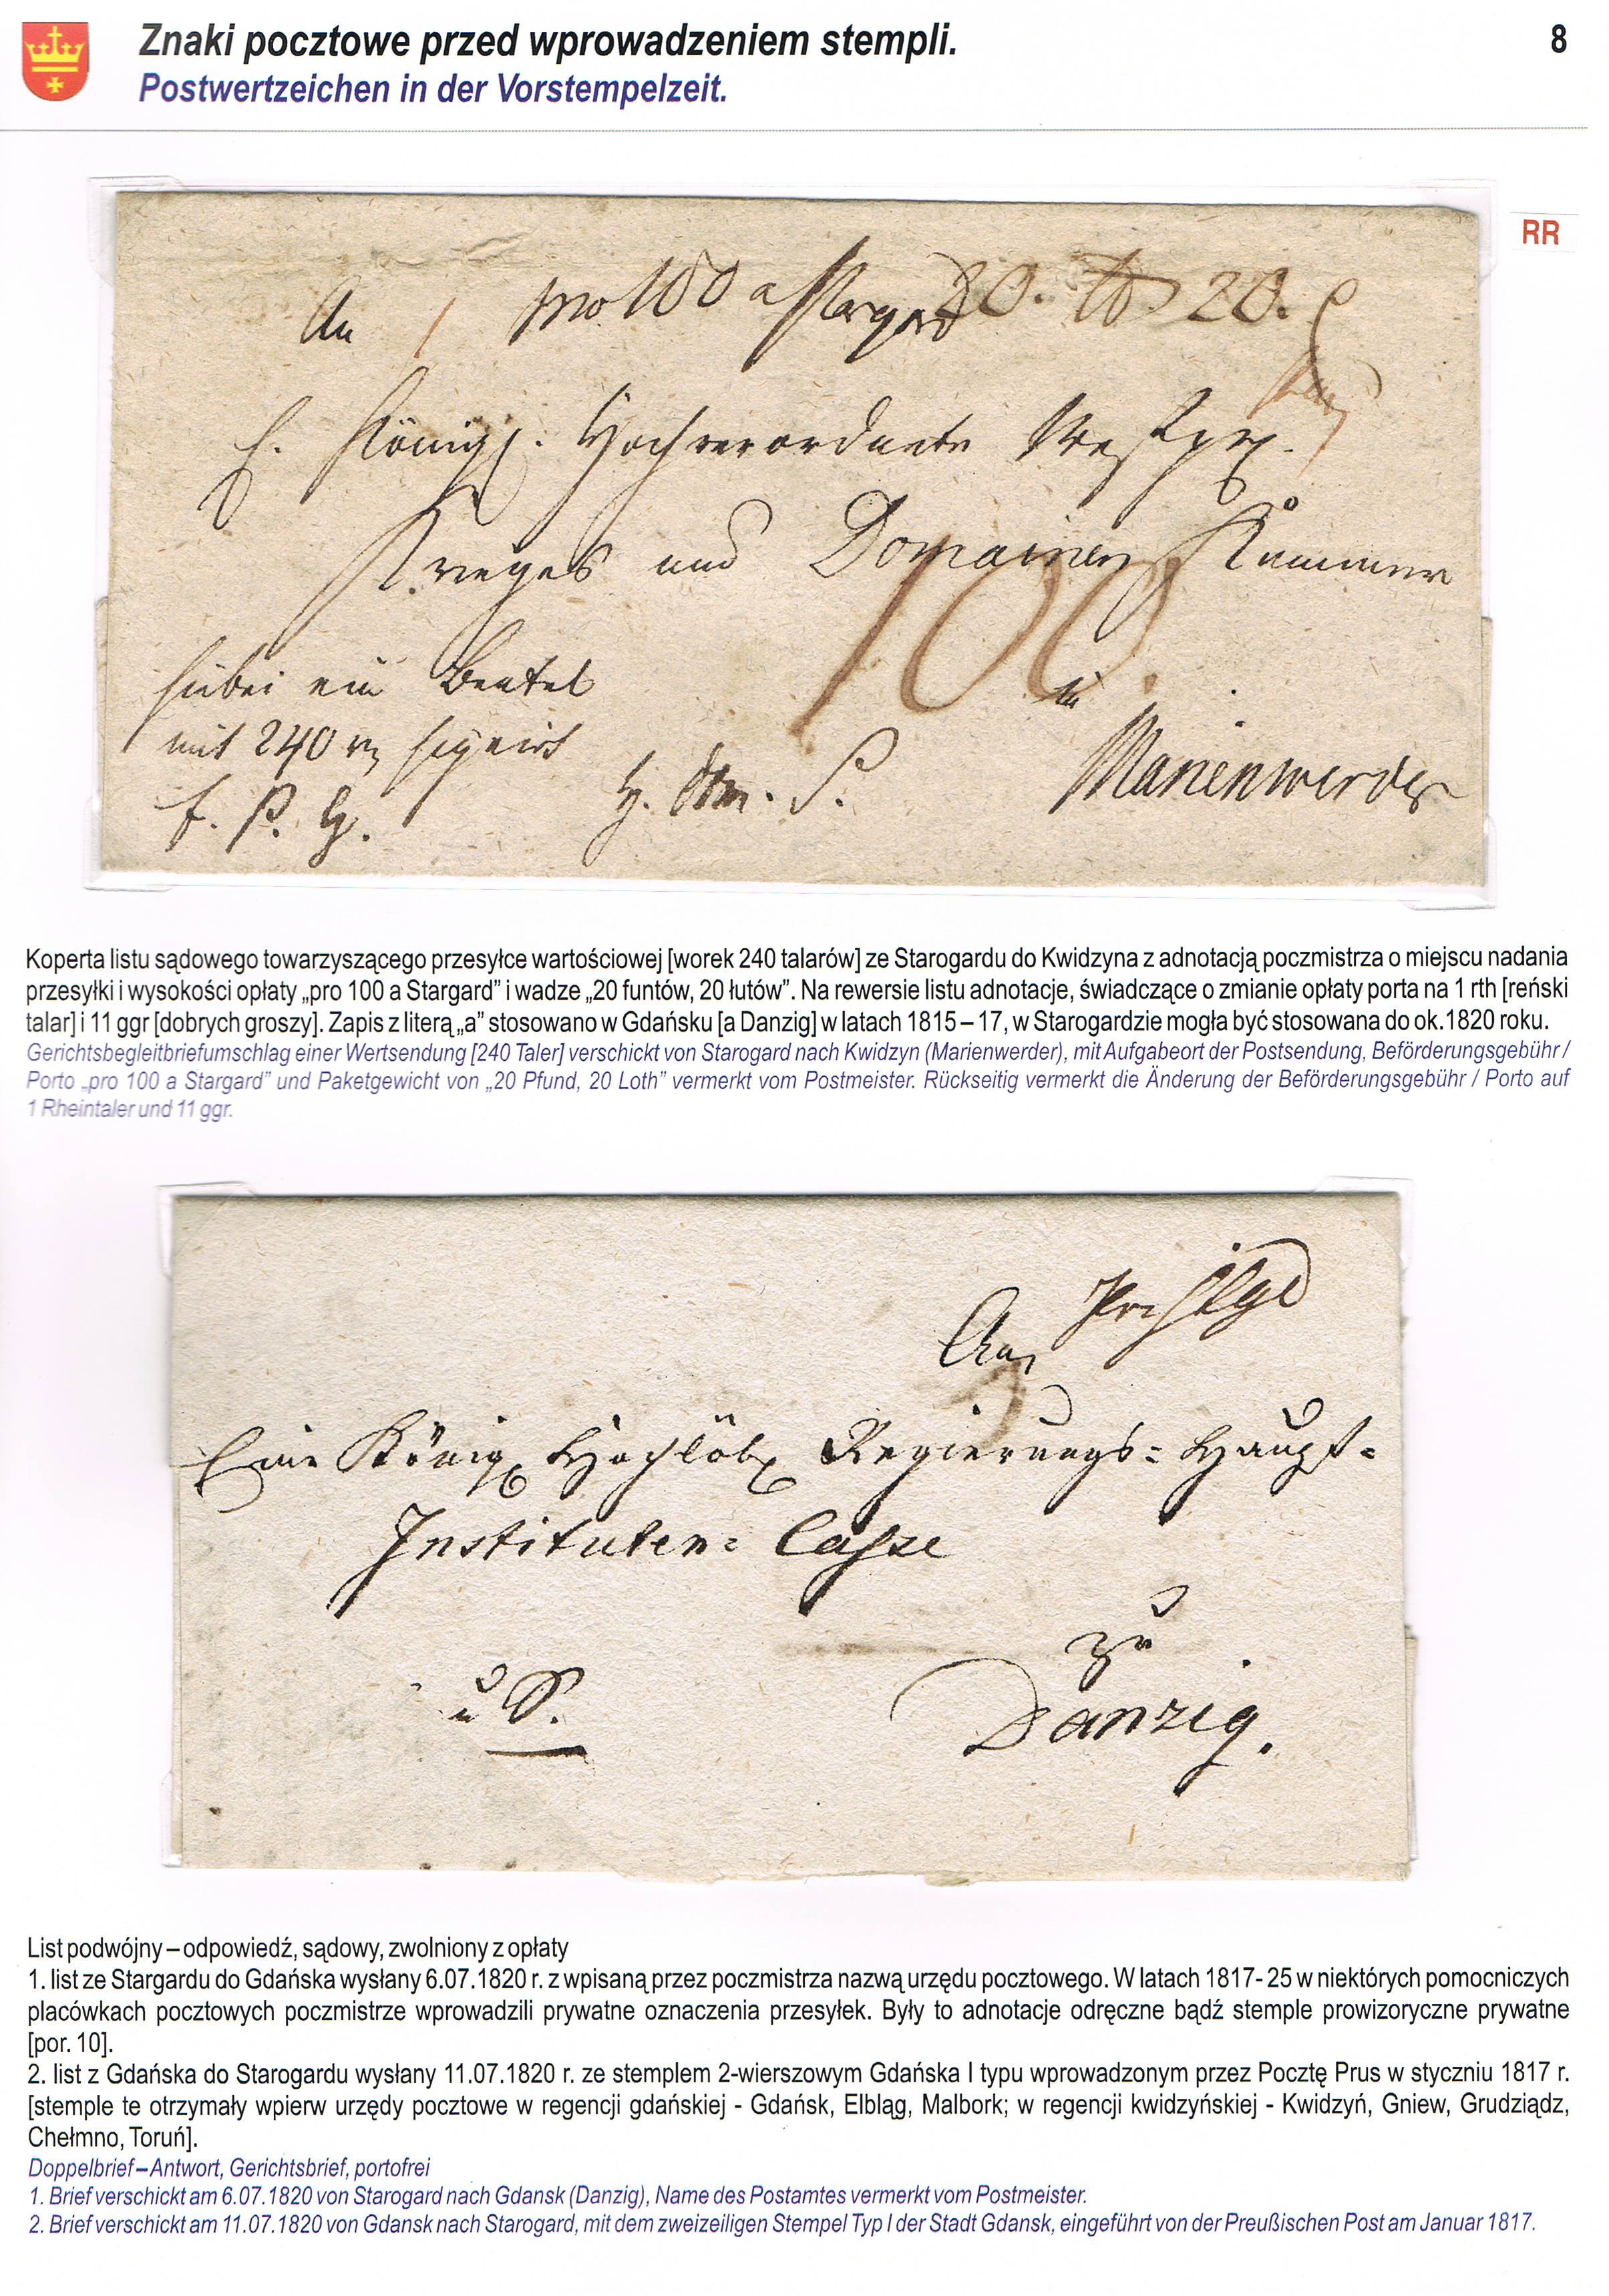 Znaki pocztowe przed wprowadzeniem stempli.
8
Postwertzeichen in der Vorstempelzeit.
RR
An pro 100 a Stargard 20. 20.
E. Königl. Hochverordnete Westpr.
Krieges und Domainen Kammer
100
hiebei ein Beutel
mit 240 signirt
in
Marienwerder
Koperta listu sądowego towarzyszącego przesyłce wartościowej [worek 240 talarów] ze Starogardu do Kwidzyna z adnotacją poczmistrza o miejscu nadania
przesyłki i wysokości opłaty „pro 100 a Stargard” i wadze „20 funtów, 20 łutów”. Na rewersie listu adnotacje, świadczące o zmianie opłaty porta na 1 rth [reński
talar] i 11 ggr [dobrych groszy]. Zapis z literą „a” stosowano w Gdańsku [a Danzig] w latach 1815 – 17, w Starogardzie mogła być stosowana do ok.1820 roku.
Gerichtsbegleitbriefumschlag einer Wertsendung [240 Taler] verschickt von Starogard nach Kwidzyn (Marienwerder), mit Aufgabeort der Postsendung, Beförderungsgebühr /
Porto „pro 100 a Stargard” und Paketgewicht von „20 Pfund, 20 Loth” vermerkt vom Postmeister. Rückseitig vermerkt die Änderung der Beförderungsgebühr / Porto auf
1 Rheintaler und 11 ggr.
Pr Stgd
An
Eine Königl Hochlöbl Regierungs= Haupt=
Instituten= Casse
zu
Danzig.
List podwójny – odpowiedź, sądowy, zwolniony z opłaty
1. list ze Stargardu do Gdańska wysłany 6.07.1820 r. z wpisaną przez poczmistrza nazwą urzędu pocztowego. W latach 1817- 25 w niektórych pomocniczych
placówkach pocztowych poczmistrze wprowadzili prywatne oznaczenia przesyłek. Były to adnotacje odręczne bądź stemple prowizoryczne prywatne
[por. 10].
2. list z Gdańska do Starogardu wysłany 11.07.1820 r. ze stemplem 2-wierszowym Gdańska I typu wprowadzonym przez Pocztę Prus w styczniu 1817 r.
[stemple te otrzymały wpierw urzędy pocztowe w regencji gdańskiej - Gdańsk, Elbląg, Malbork; w regencji kwidzyńskiej - Kwidzyń, Gniew, Grudziądz,
Chełmno, Toruń].
Doppelbrief – Antwort, Gerichtsbrief, portofrei
1. Brief verschickt am 6.07.1820 von Starogard nach Gdansk (Danzig), Name des Postamtes vermerkt vom Postmeister.
2. Brief verschickt am 11.07.1820 von Gdansk nach Starogard, mit dem zweizeiligen Stempel Typ I der Stadt Gdansk, eingeführt von der Preußischen Post am Januar 1817.